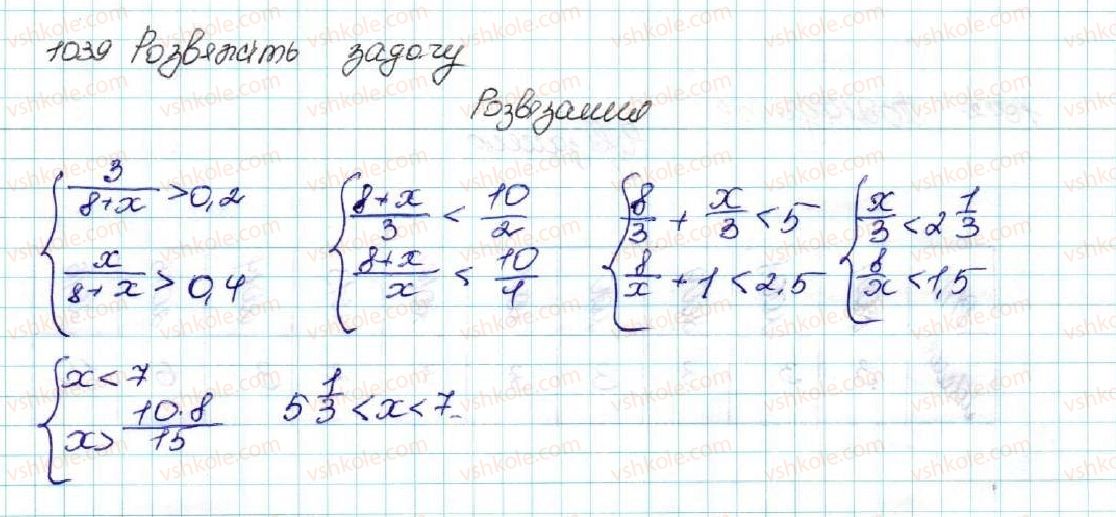 1039 Розвяжіть задачу
Розвезання
{ 3/(8+x) > 0,2
x/(8+x) > 0,4
{ (8+x)/3 < 10/2
(8+x)/x < 10/4
{ 8/3 + x/3 < 5
8/x + 1 < 2,5
{ x/3 < 2 1/3
8/x < 1,5
{ x < 7
x > 10·8/15
5 1/3 < x < 7